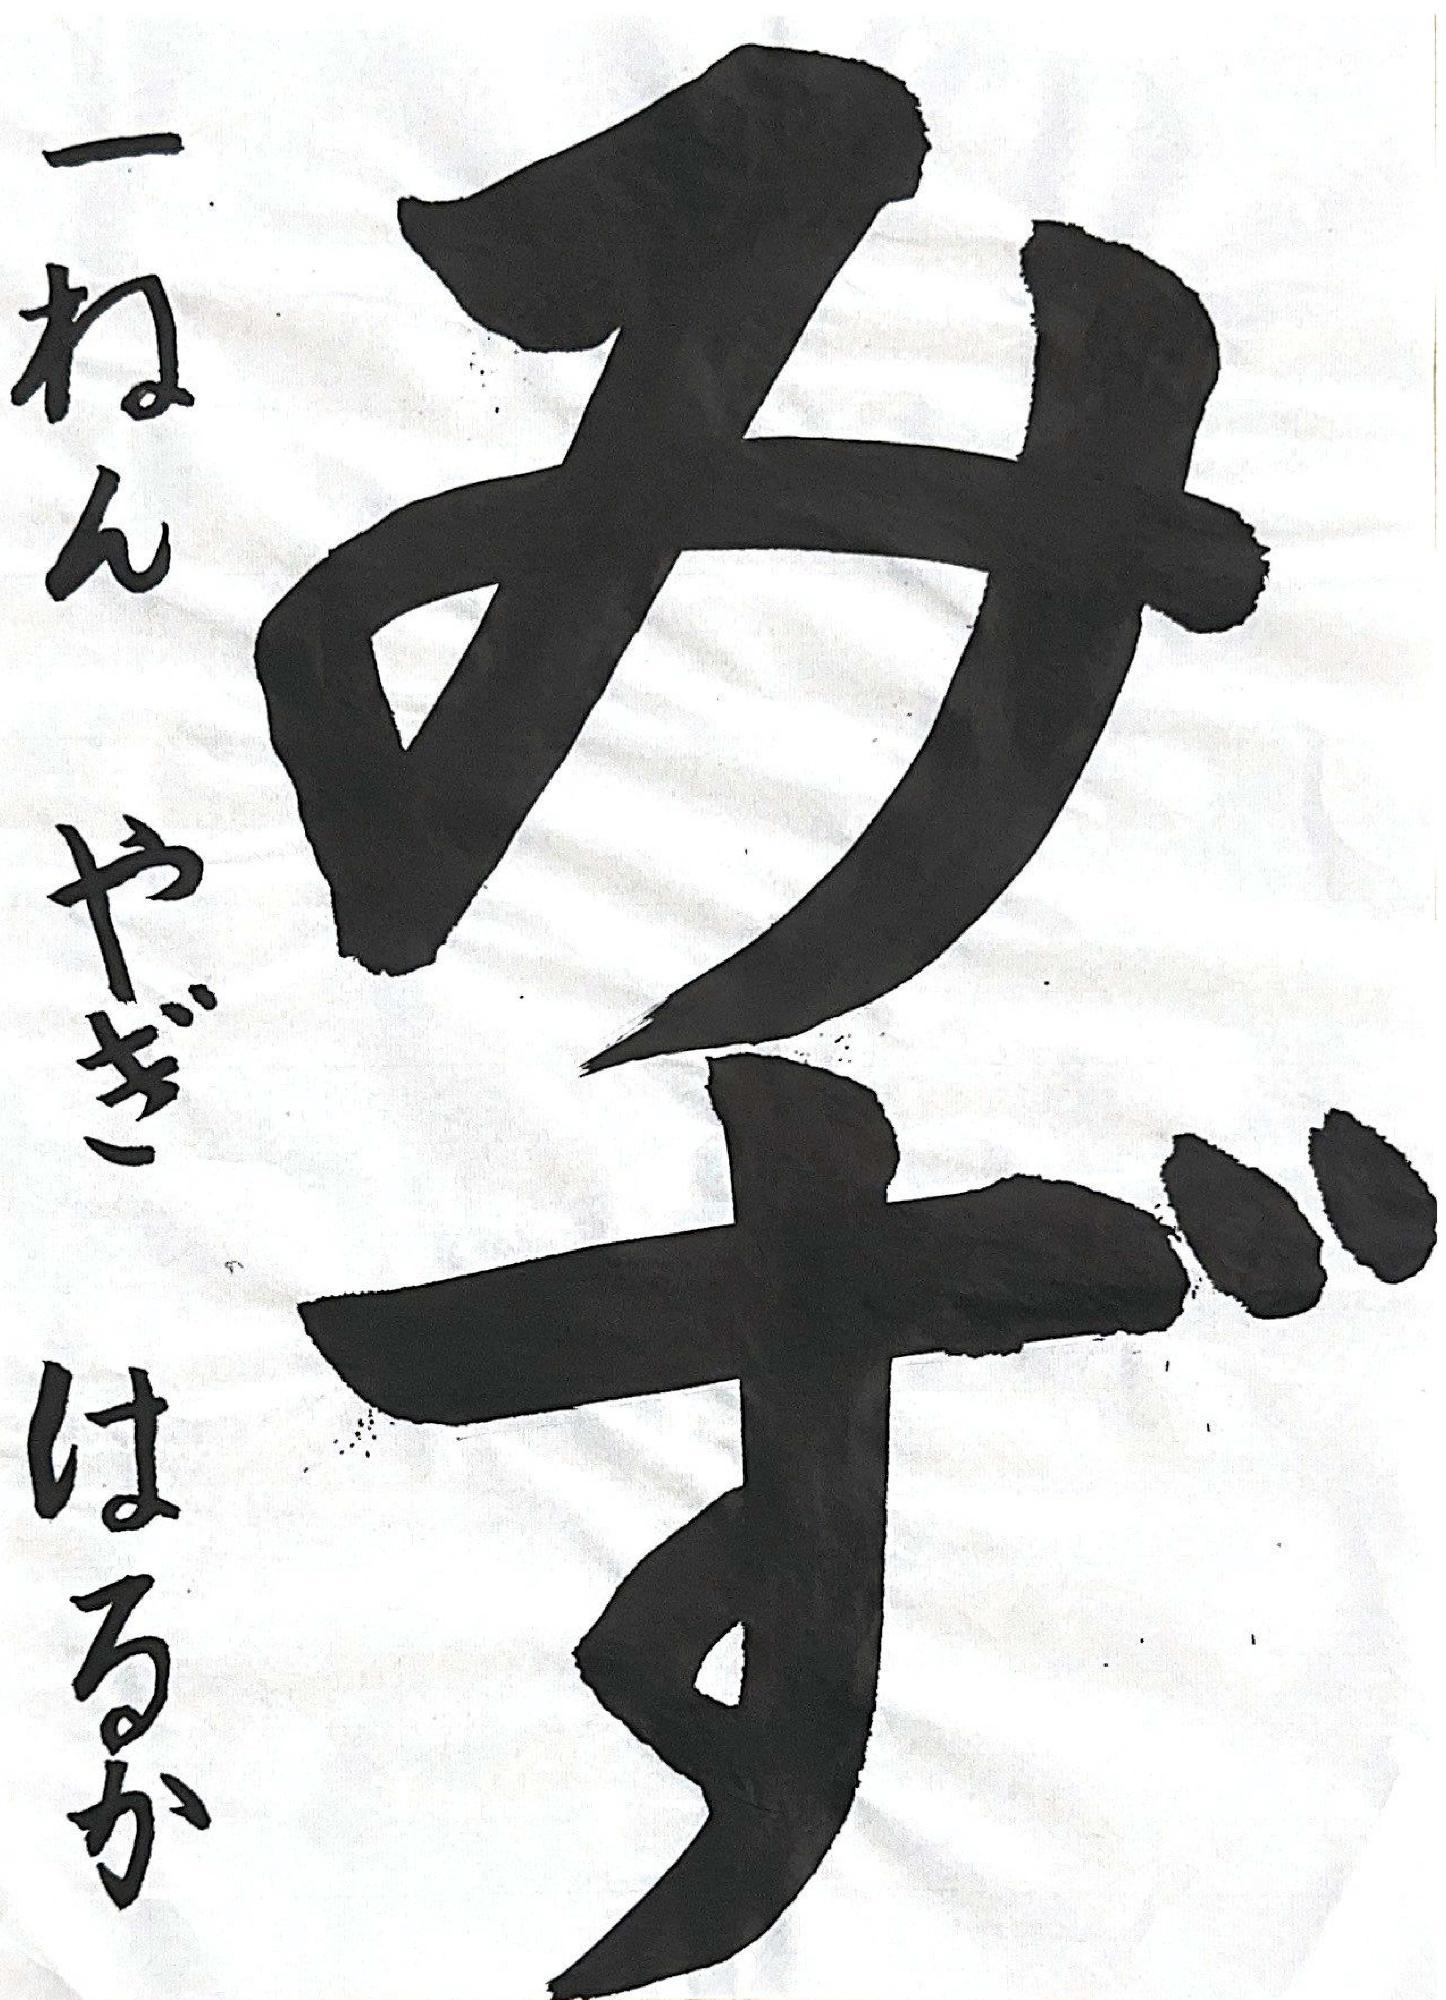 みず
一ねん やぎ はるか